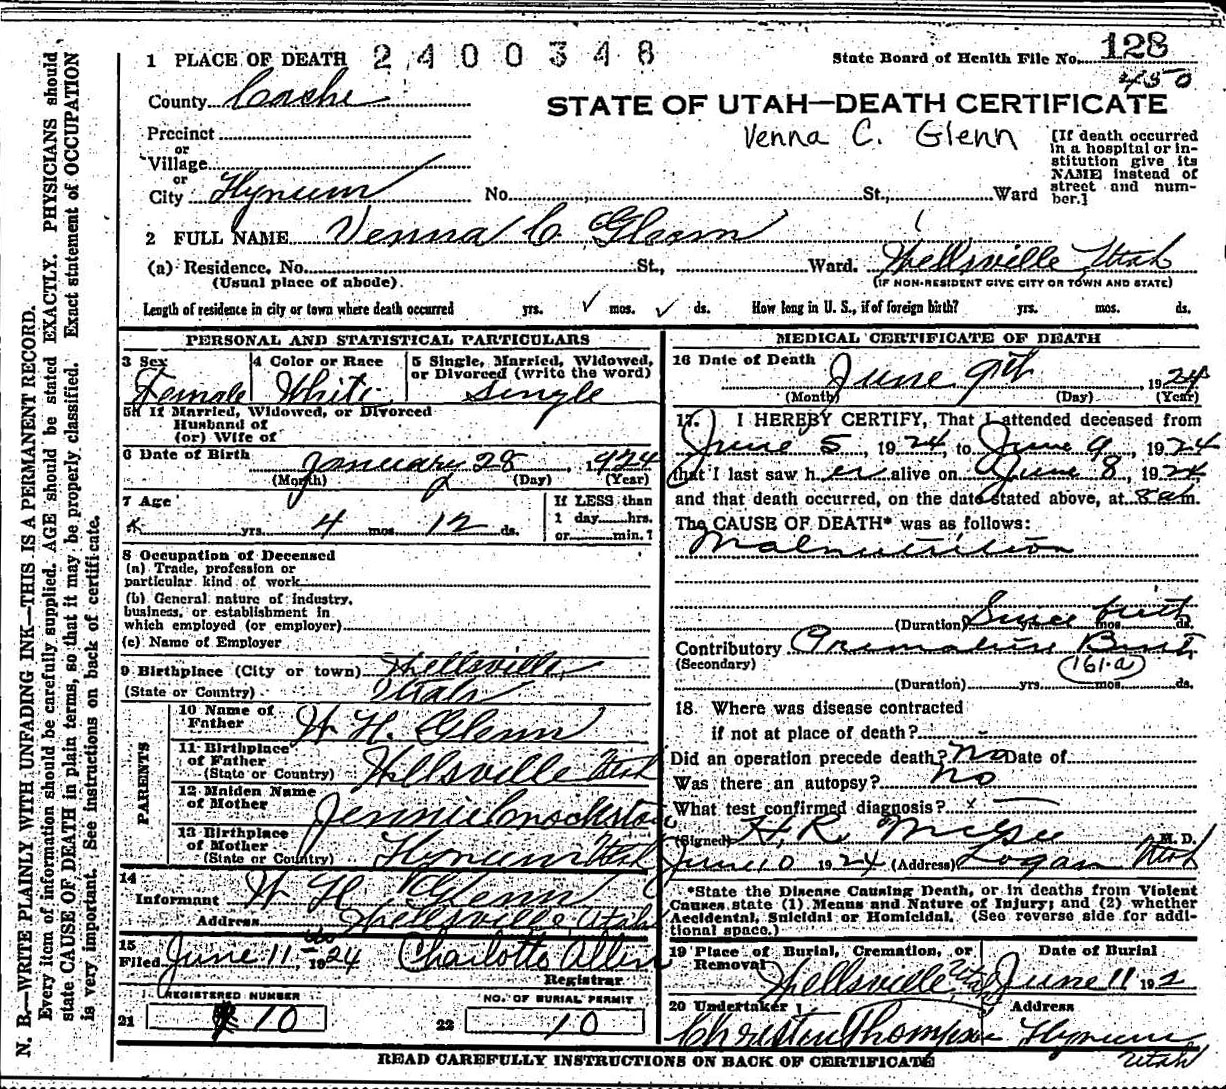 1 PLACE OF DEATH 2400348 State Board of Health File No. 128
450
County Cache
STATE OF UTAH—DEATH CERTIFICATE
Venna C. Glenn
Precinct
or
Village
or
City Hyrum No. St., Ward
[If death occurred
in a hospital or in-
stitution give its
NAME instead of
street and num-
ber.]
2 FULL NAME Venna C. Glenn
(a) Residence. No. St., Ward. Wellsville Utah
(Usual place of abode) (IF NON-RESIDENT GIVE CITY OR TOWN AND STATE)
Length of residence in city or town where death occurred yrs. ✓ mos. ✓ ds. How long in U. S., if of foreign birth? yrs. mos. ds.
PERSONAL AND STATISTICAL PARTICULARS
3 Sex 4 Color or Race 5 Single, Married, Widowed,
or Divorced (write the word)
Female White Single
5a If Married, Widowed, or Divorced
Husband of
(or) Wife of
6 Date of Birth January 28, 1924
(Month) (Day) (Year)
7 Age
yrs. 4 mos. 12 ds.
If LESS than
1 day hrs.
or min.?
8 Occupation of Deceased
(a) Trade, profession or
particular kind of work
(b) General nature of industry,
business, or establishment in
which employed (or employer)
(c) Name of Employer
9 Birthplace (City or town) Wellsville,
(State or Country) Utah
PARENTS
10 Name of
Father W. H. Glenn
11 Birthplace
of Father
(State or Country) Wellsville Utah
12 Maiden Name
of Mother Jennie Crockston
13 Birthplace
of Mother
(State or Country) Hyrum Utah
14
Informant W H Glenn
Address Wellsville, Utah
15
Filed June 11, 1924 Charlotte Allen
Registrar
REGISTERED NUMBER
21 10
NO. OF BURIAL PERMIT
22 10
MEDICAL CERTIFICATE OF DEATH
16 Date of Death June 9th, 1924
(Month) (Day) (Year)
17. I HEREBY CERTIFY, That I attended deceased from
June 5, 1924, to June 9, 1924
that I last saw her alive on June 8, 1924
and that death occurred, on the date stated above, at 8 am.
The CAUSE OF DEATH* was as follows:
Malnutrition
(Duration) Since birth yrs. mos. ds.
Contributory Premature Birth
(Secondary) 161.a
(Duration) yrs. mos. ds.
18. Where was disease contracted
if not at place of death? -
Did an operation precede death? No Date of
Was there an autopsy? No
What test confirmed diagnosis? x
(Signed) H. R. McGee M. D.
June 10 1924 (Address) Logan Utah
*State the Disease Causing Death, or in deaths from Violent
Causes, state (1) Means and Nature of Injury; and (2) whether
Accidental, Suicidal or Homicidal. (See reverse side for addi-
tional space.)
19 Place of Burial, Cremation, or Removal Date of Burial
Wellsville Utah June 11 192
20 Undertaker Address
Christen Thompson Hyrum
Utah
READ CAREFULLY INSTRUCTIONS ON BACK OF CERTIFICATE
N. B.—WRITE PLAINLY WITH UNFADING INK—THIS IS A PERMANENT RECORD.
Every item of information should be carefully supplied. AGE should be stated EXACTLY. PHYSICIANS should
state CAUSE OF DEATH in plain terms, so that it may be properly classified. Exact statement of OCCUPATION
is very important. See instructions on back of certificate.